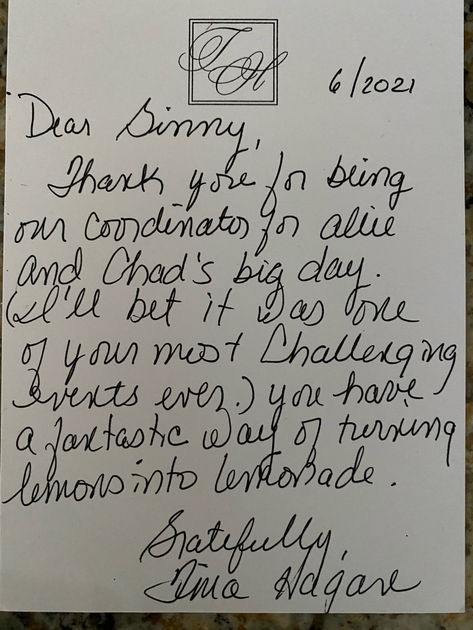 TH
6/2021
Dear Ginny,
Thank you for being
our coordinator for allie
and Chad's big day.
(I'll bet it was one
of your most Challenging
events ever.) you have
a fantastic way of turning
lemons into lemonade.
Gratefully,
Tina Hagare